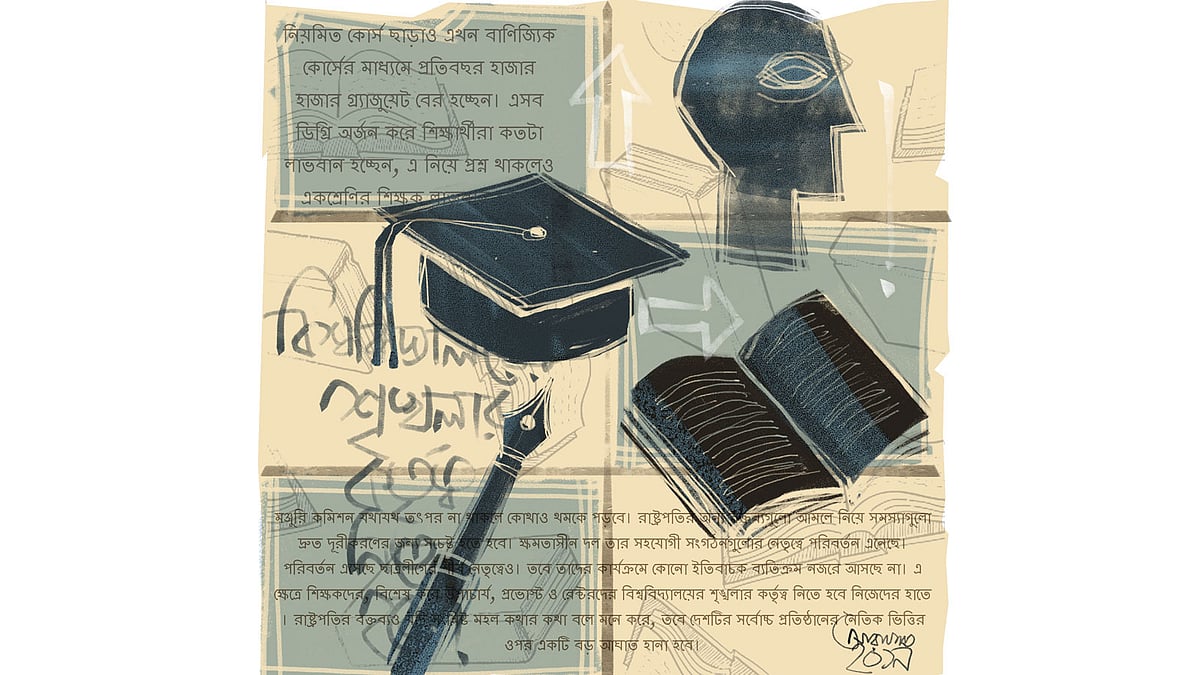 নিয়মিত কোর্স ছাড়াও এখন বাণিজ্যিক
কোর্সের মাধ্যমে প্রতিবছর হাজার
হাজার গ্র্যাজুয়েট বের হচ্ছেন। এসব
ডিগ্রি অর্জন করে শিক্ষার্থীরা কতটা
লাভবান হচ্ছেন, এ নিয়ে প্রশ্ন থাকলেও
একশ্রেণির শিক্ষক
শৃঙ্খলার
মঞ্জুরি কমিশন যথাযথ তৎপর না থাকলে কোথাও থমকে পড়বে। রাষ্ট্রপতির অন্য বক্তব্যগুলো আমলে নিয়ে সমস্যাগুলো
দ্রুত দূরীকরণের জন্য সচেষ্ট হতে হবে। ক্ষমতাসীন দল তার সহযোগী সংগঠনগুলোর নেতৃত্বে পরিবর্তন এনেছে।
পরিবর্তন এসেছে ছাত্রলীগের শীর্ষ নেতৃত্বেও। তবে তাদের কার্যক্রমে কোনো ইতিবাচক ব্যতিক্রম নজরে আসছে না। এ
ক্ষেত্রে শিক্ষকদের, বিশেষ করে উপাচার্য, প্রভোস্ট ও রেক্টরদের বিশ্ববিদ্যালয়ের শৃঙ্খলার কর্তৃত্ব নিতে হবে নিজেদের হাতে
। রাষ্ট্রপতির বক্তব্যও যদি সংশ্লিষ্ট মহল কথার কথা বলে মনে করে, তবে দেশটির সর্বোচ্চ প্রতিষ্ঠানের নৈতিক ভিত্তির
ওপর একটি বড় আঘাত হানা হবে।